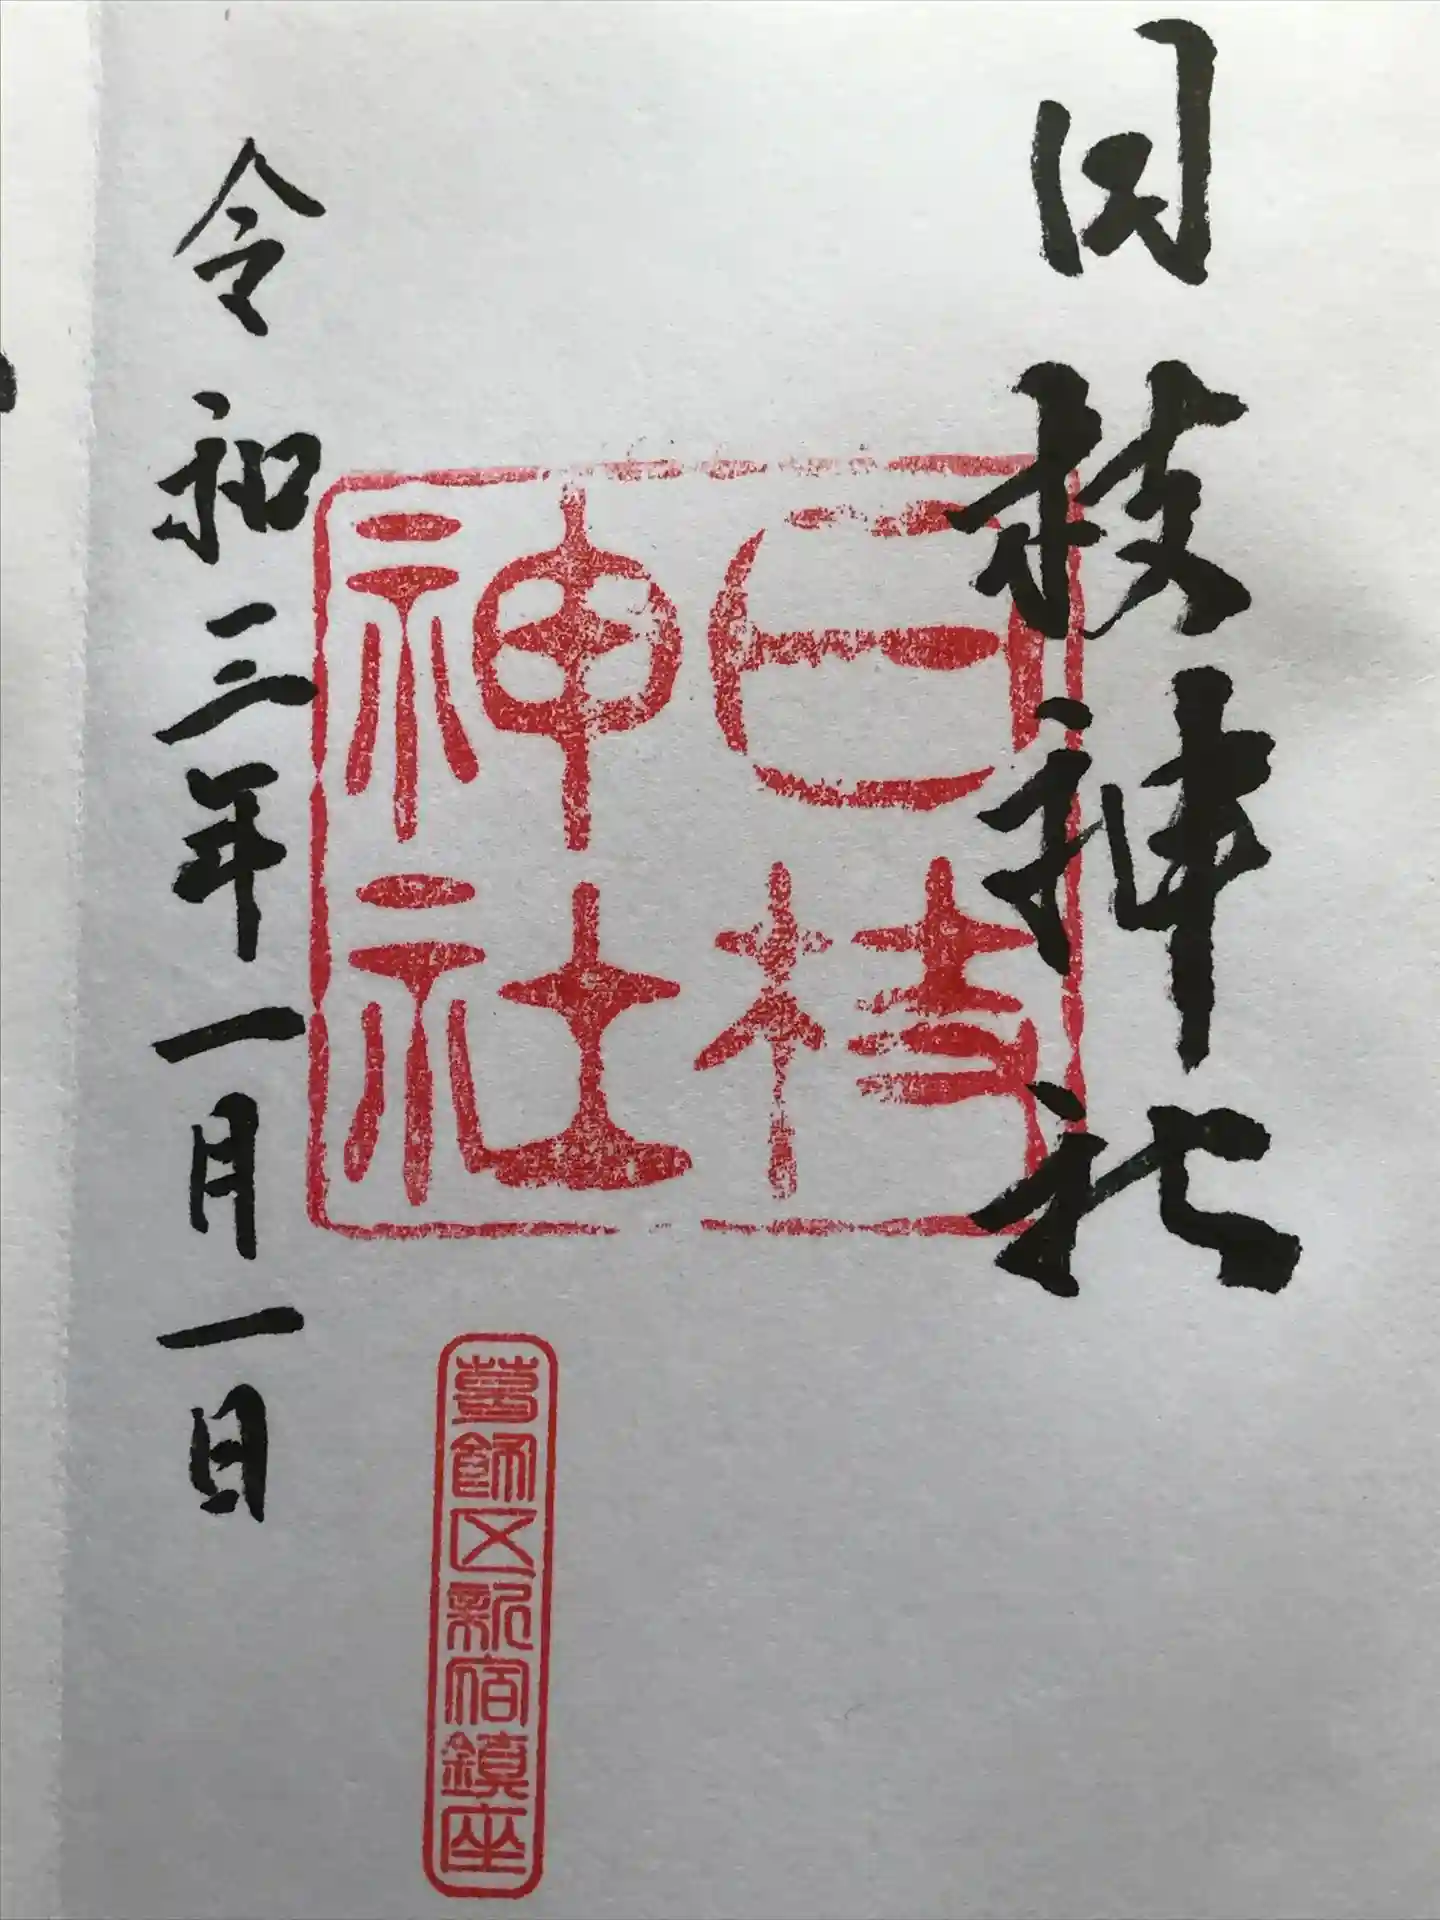 日枝神社
日枝
神社
葛飾区新宿鎮座
令和三年一月一日